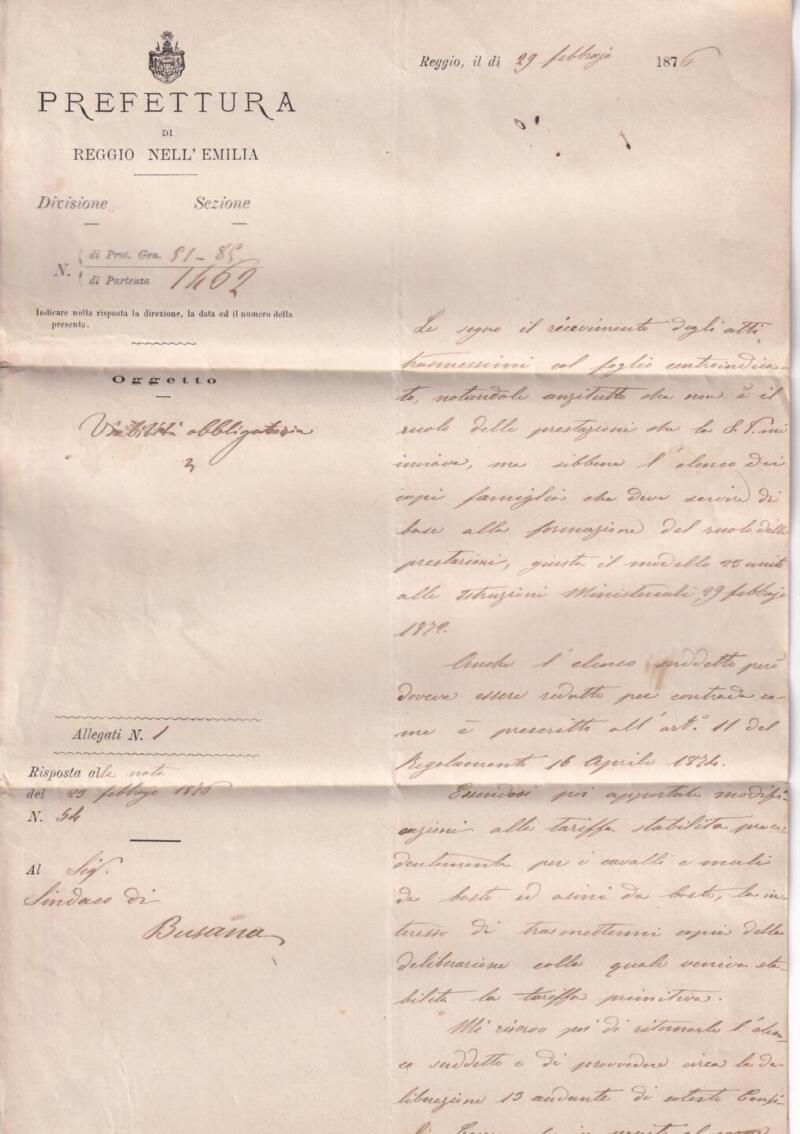 PREFETTURA
DI
REGGIO NELL' EMILIA
Divisione Sezione
N. di Prot. Gen. 51-85
di Partenza 1462
Indicare nella risposta la direzione, la data ed il numero della
presente.
Oggetto
Viabilità obbligatoria
Allegati N. 1
Risposta alla nota
del 23 febbrajo 1876
N. 54
Al Sig.
Sindaco di
Busana
Reggio, il dì 29 febbrajo 1876
Le segno il ricevimento degli atti
trasmessimi col foglio controindica-
to, notandole anzitutto che non è il
ruolo delle prestazioni che la S. V. mi
inviava, ma sibbene l'elenco dei
capi famiglia che deve servire di
base alla formazione del ruolo delle
prestazioni, giusta il modello 25 unito
alle Istruzioni Ministeriali 29 febbrajo
187
Anche l'elenco suddetto però
doveva essere redatto per contrada co-
me è prescritto all'art.° 11 del
Regolamento 16 Aprile 1874.
Essendosi poi apportate modifi-
cazioni alla tariffa stabilita prece-
dentemente per i cavalli e muli
da basto ed asini da basto, la in-
teresso di trasmettermi copia della
deliberazione colla quale veniva sta-
bilita la tariffa primitiva.
Mi riservo poi di ritornarle l'elen-
co suddetto e di provvedere circa la de-
liberazione 13 andante di cotesto Consi-